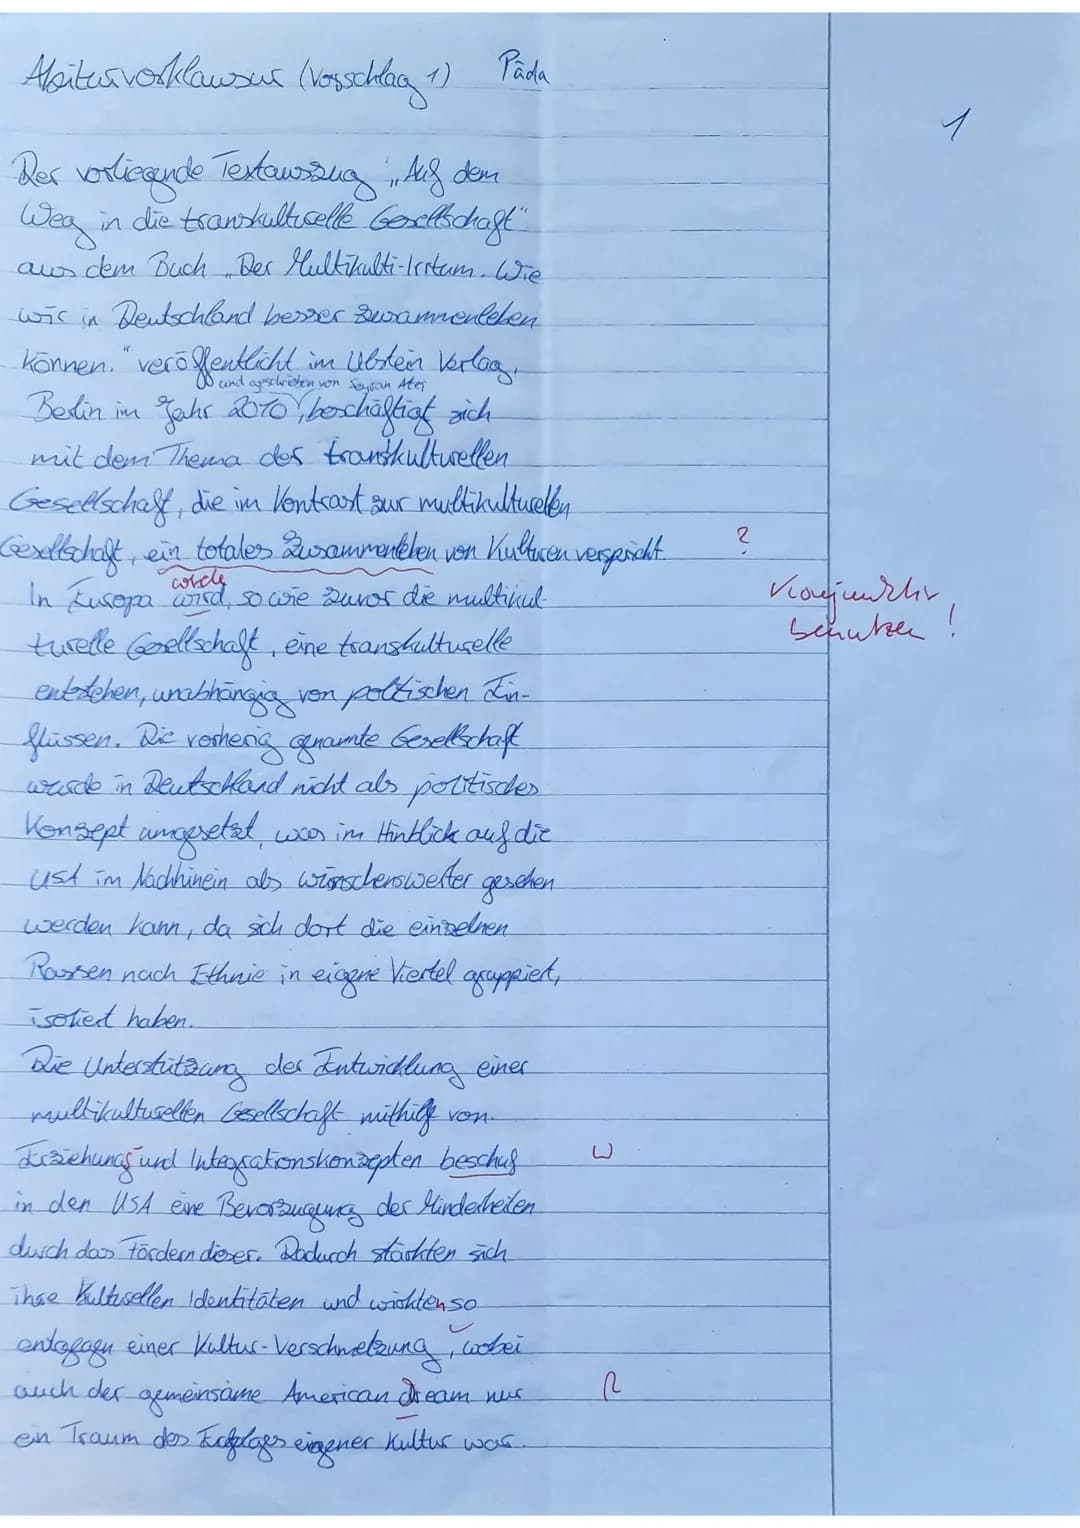 Abiturvorklausur (Vorschlag 1) Päda
1
Der vorliegende Textauszug „Auf dem
Weg in die transkulturelle Gesellschaft"
aus dem Buch „Der Multikulti-Irrtum. Wie
wir in Deutschland besser zusammenleben
können." veröffentlicht im Ullstein Verlag,
und geschrieben von Seyran Ateş
Berlin im Jahr 2010, beschäftigt sich
mit dem Thema der transkulturellen
Gesellschaft, die im Kontrast zur multikulturellen
Gesellschaft, ein totales Zusammenleben von Kulturen verspricht. ?
werde
In Europa wird, so wie zuvor die multikul- Konjunktiv
turelle Gesellschaft, eine transkulturelle benutzen!
entstehen, unabhängig von politischen Ein-
flüssen. Die vorherig genannte Gesellschaft
wurde in Deutschland nicht als politisches
Konzept umgesetzt, was im Hinblick auf die
USA im Nachhinein als wünschenswerter gesehen
werden kann, da sich dort die einzelnen
Rassen nach Ethnie in eigene Viertel gruppiert,
isoliert haben.
Die Unterstützung der Entwicklung einer
multikulturellen Gesellschaft mithilfe von
Erziehungs- und Integrationskonzepten beschuf W
in den USA eine Bevorzugung der Minderheiten
durch das Fördern dieser. Dadurch stärkten sich
ihre kulturellen Identitäten und wirkten so
entgegen einer Kultur-Verschmelzung, wobei
auch der gemeinsame American dream nur R
ein Traum des eigener Kultur war.